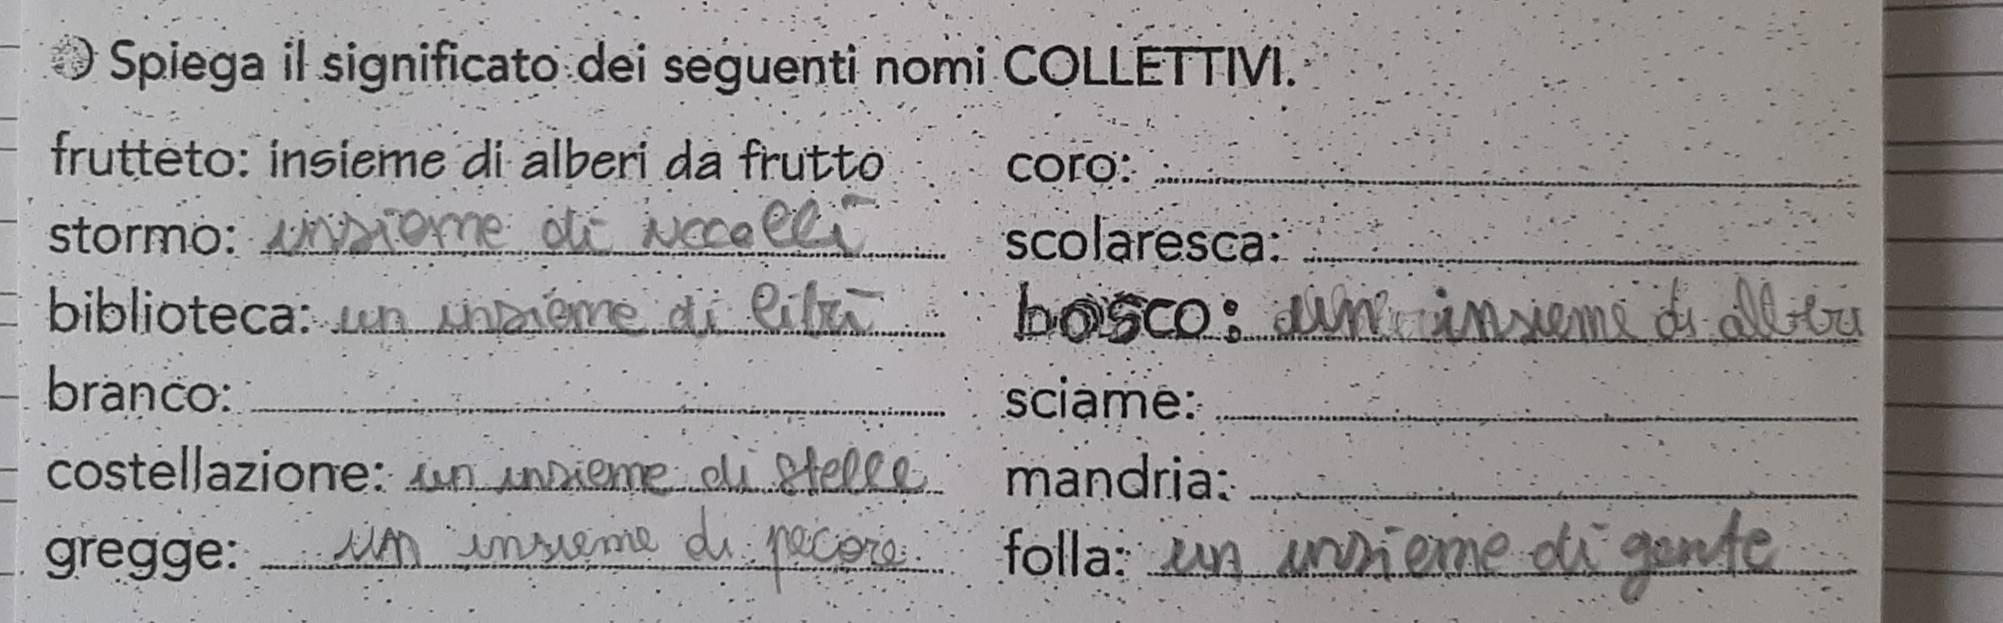 Spiega il significato dei seguenti nomi COLLETTIVI.
frutteto: insieme di alberi da frutto
stormo: insieme di uccelli
biblioteca: un insieme di libri
branco:
costellazione: un insieme di stelle
gregge: un insieme di pecore
coro:
scolaresca:
bosco: un insieme di alberi
sciame:
mandria:
folla: un insieme di gente